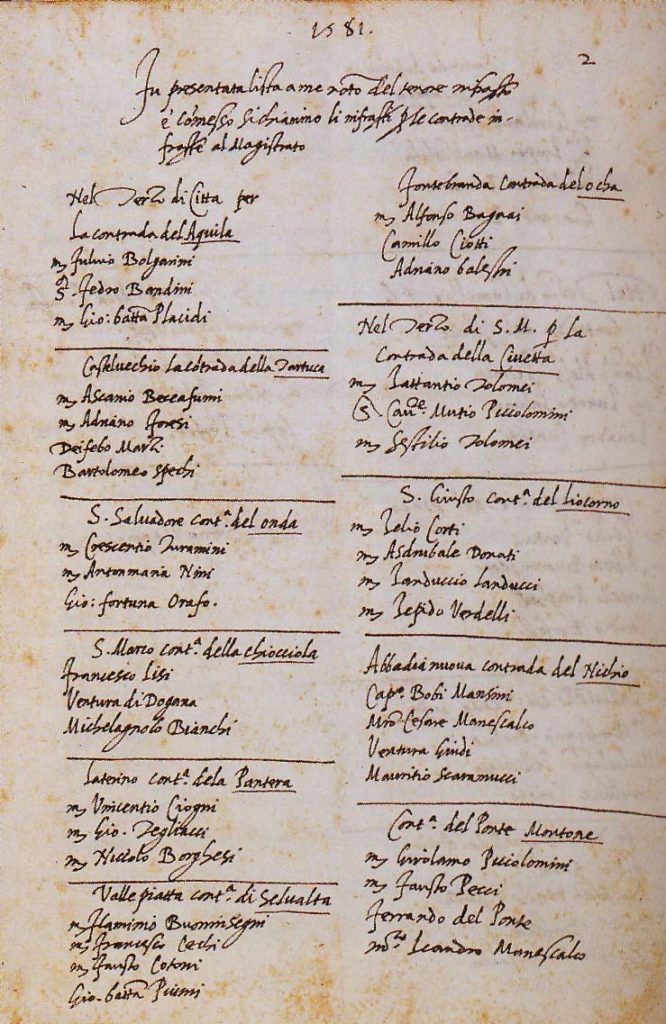 1581.
2
Fu presentata lista a me notº del tenore infrastº
e comesso si chiamino li infrastⁱ ꝑ le contrade in-
frastᵉ al Magistrato
Nel Terzo di Citta per
La contrada del Aquila
mˢ Fulvio Bolgarini
Sº. Fedro Bandini
mˢ Gio: battᵃ Placidi
Castelvechio la cótrada della Tartuca
mˢ Ascanio Beccafumi
mˢ Adriano Foresi
Deifebo Marzi
Bartolomeo Spechi
S. Salvadore contᵃ. del onda
mˢ Crescentio Turamini
mˢ Antonmaria Nini
Gio: fortuna Orafo.
S. Marco contᵃ. della chiocciola
Francesco Lisi
Ventura di Dogana
Michelagnolo Bianchi
Laterino contᵃ. dela Pantera
mˢ Vincentio Ciogni
mˢ Gio. Tegliacci
mˢ Niccolo Borghesi
Valle piatta contᵃ. di Selvalta
mˢ Flaminio Buoninsegni
mˢ Francesco Cechi
mˢ Fausto Cotoni
Gio. battᵃ
Fontebranda contrada del ocha
mˢ Alfonso Bagnai
Camillo Ciotti
Adriano balestri
Nel Terzo di S. M. ꝑ La
Contrada della Civetta
mˢ Lattantio Tolomei
S Cavʳᵉ. Mutio Piccolomini
mˢ Sestilio Tolomei
S. Giusto contᵃ. del liocorno
mˢ Lelio Corti
mˢ Asdrubale Donati
mˢ Landuccio Landucci
mˢ Lepido Verdelli
Abbadia nuova contrada del Nichio
Capº. Bobi Mansini
Mrº Cesare Manescalco
Ventura Guidi
Mauritio Scaramucci
Contᵃ. del Ponte Montone
mˢ Girolamo Piccolomini
mˢ Fausto Pecci
Ferrando del Ponte
mʳº Leandro Manescalco